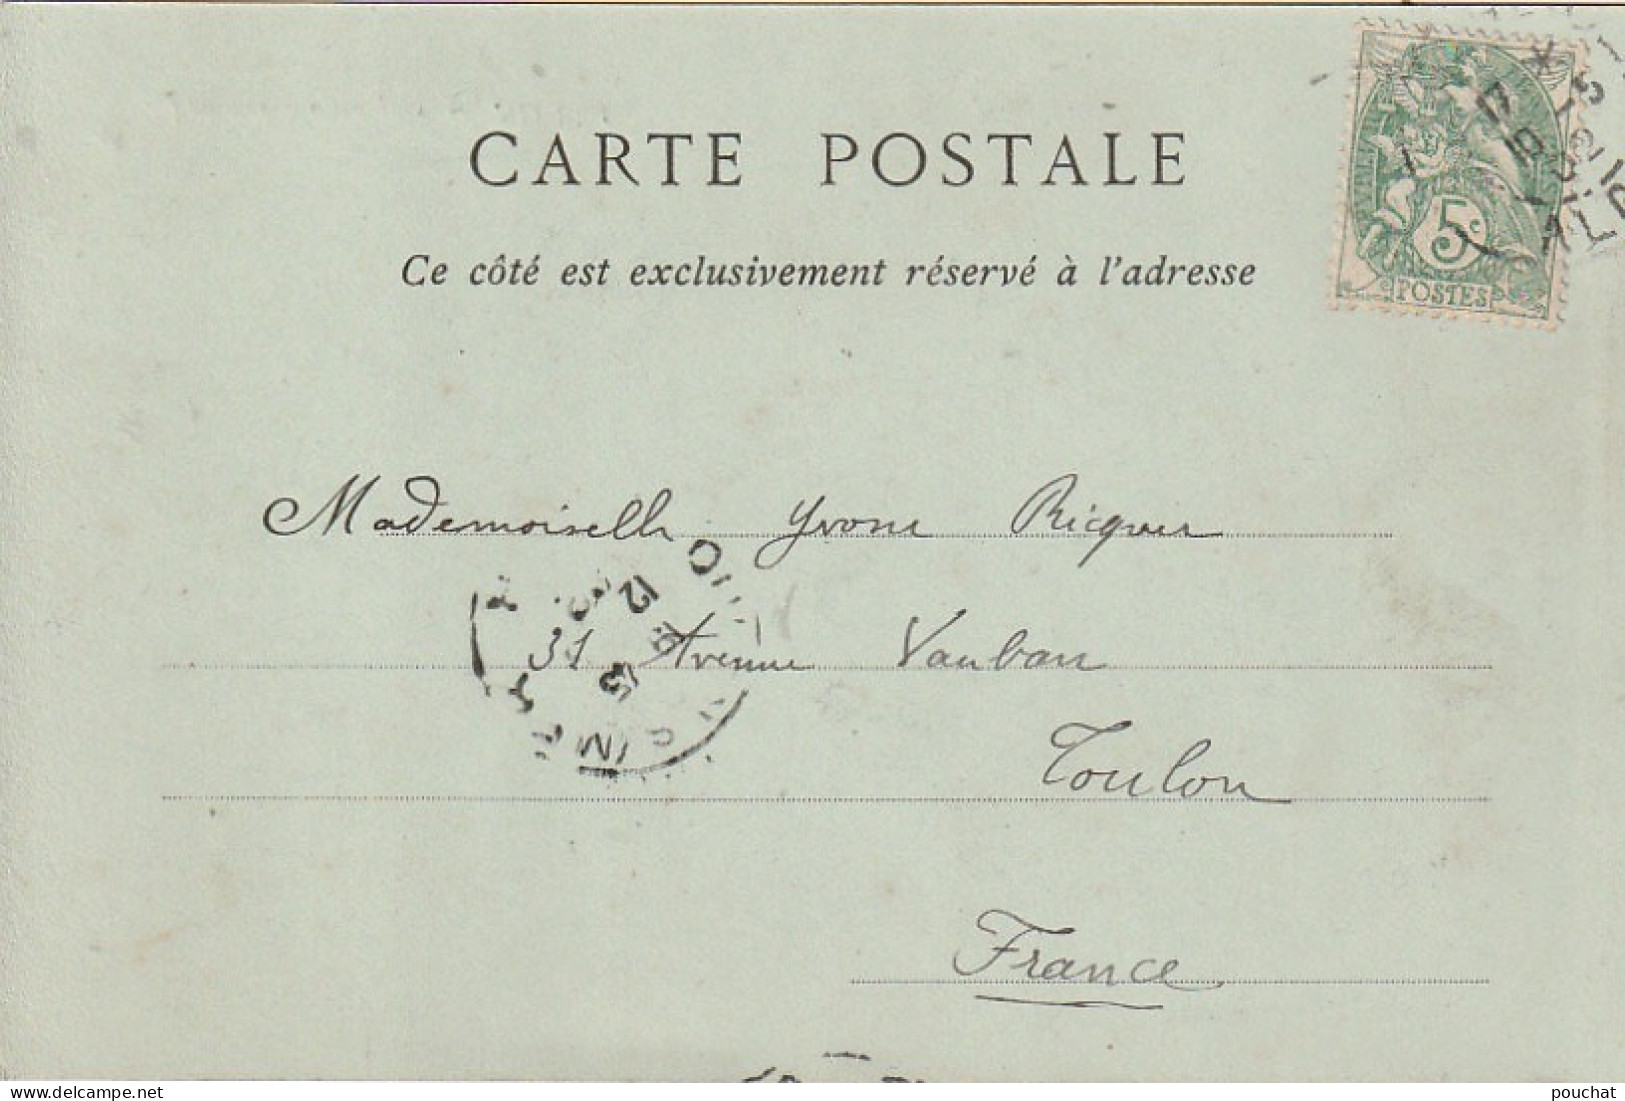 CARTE POSTALE
Ce côté est exclusivement réservé à l'adresse
5c
POSTES
Mademoiselle Yvone Ricquer
31 Avenue Vauban
Toulon
France
www.delcampe.net
pouchat